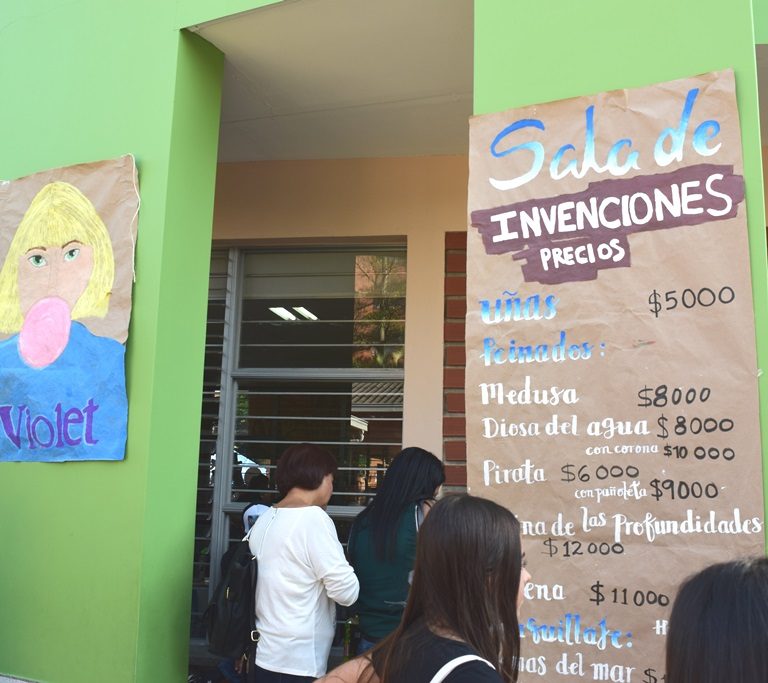 Violet
Sala de
INVENCIONES
PRECIOS
uñas $5000
Peinados:
Medusa $8000
Diosa del agua $8000
con corona $10 000
Pirata $6000
con pañoleta $9000
de las Profundidades
$12000
$11000
del mar